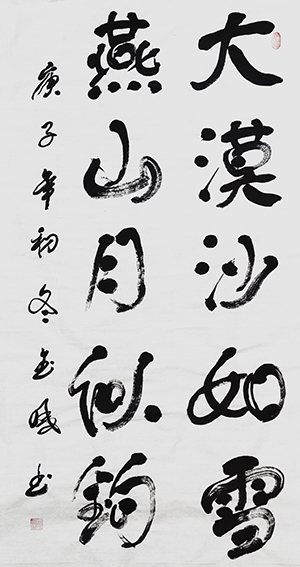 大漠沙如雪
燕山月似钩
庚子年初冬金成书